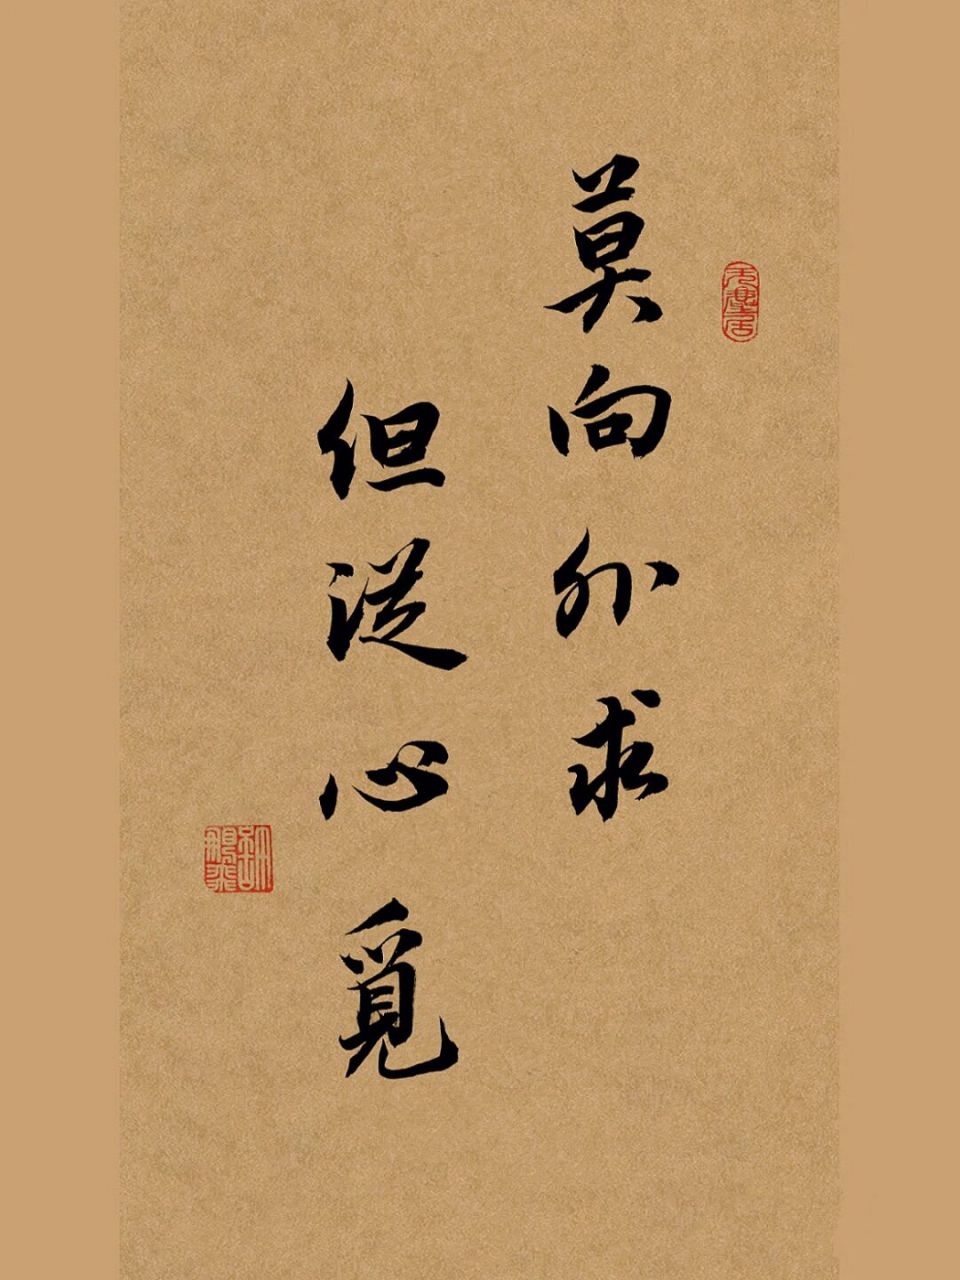 莫向外求
但從心覓